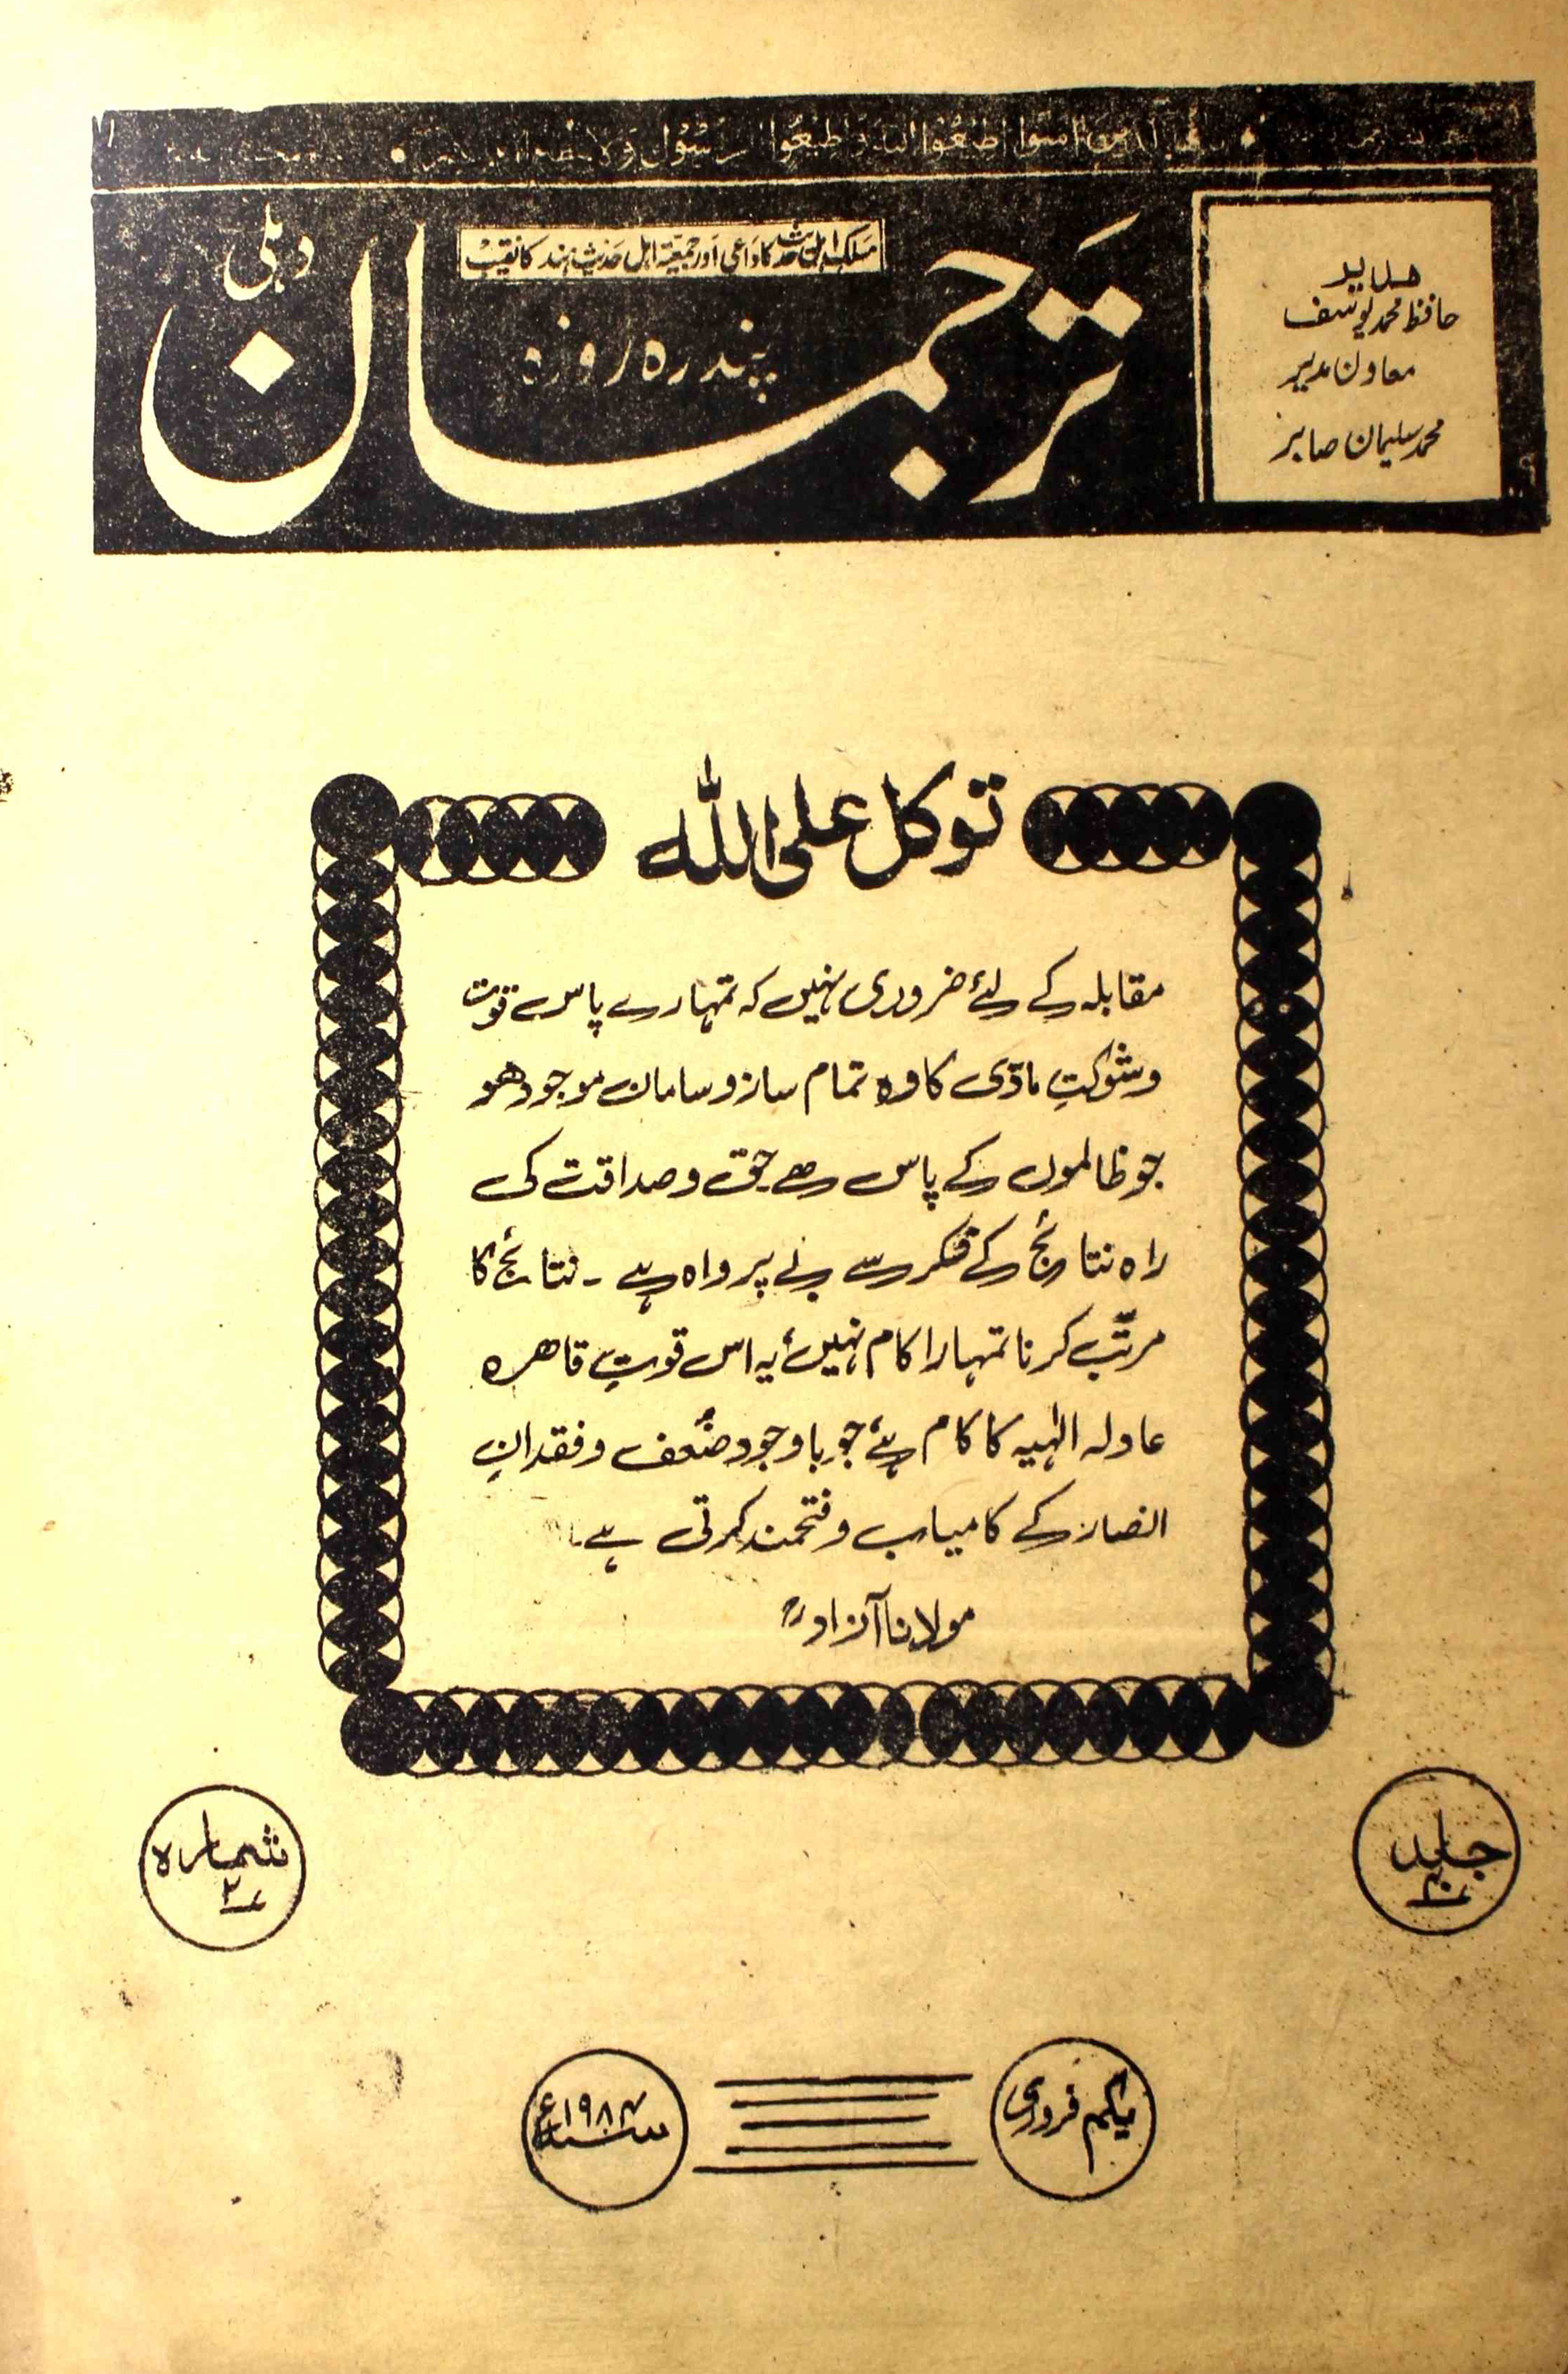 امنوا اطیعوا اللہ و اطیعوا الرسول ولا
ترجمان
دہلی
مسلک اہل حدیث کا داعی اور جمعیۃ اہل حدیث ہند کا نقیب
پندرہ روزہ
مدیر
حافظ محمد یوسف
معاون مدیر
محمد سلیمان صابر
توکل علی اللہ
مقابلہ کے لئے ضروری نہیں کہ تمہارے پاس قوت
وشوکتِ مادّی کا وہ تمام سازو سامان موجود ھو
جو ظالموں کے پاس ھے حق وصداقت کی
راہ نتائج کے فکر سے بے پرواہ ہے ۔ نتائج کا
مرتّب کرنا تمہارا کام نہیں، یہ اس قوتِ قاھرہ
عادلہ الٰہیہ کا کام ہے، جو باوجود ضُعف وفقدانِ
انصار کے کامیاب وفتحمند کرتی ہے۔
مولانا آزادؒ
جلد
شمارہ
یکم فروری
۱۹۸۴ء